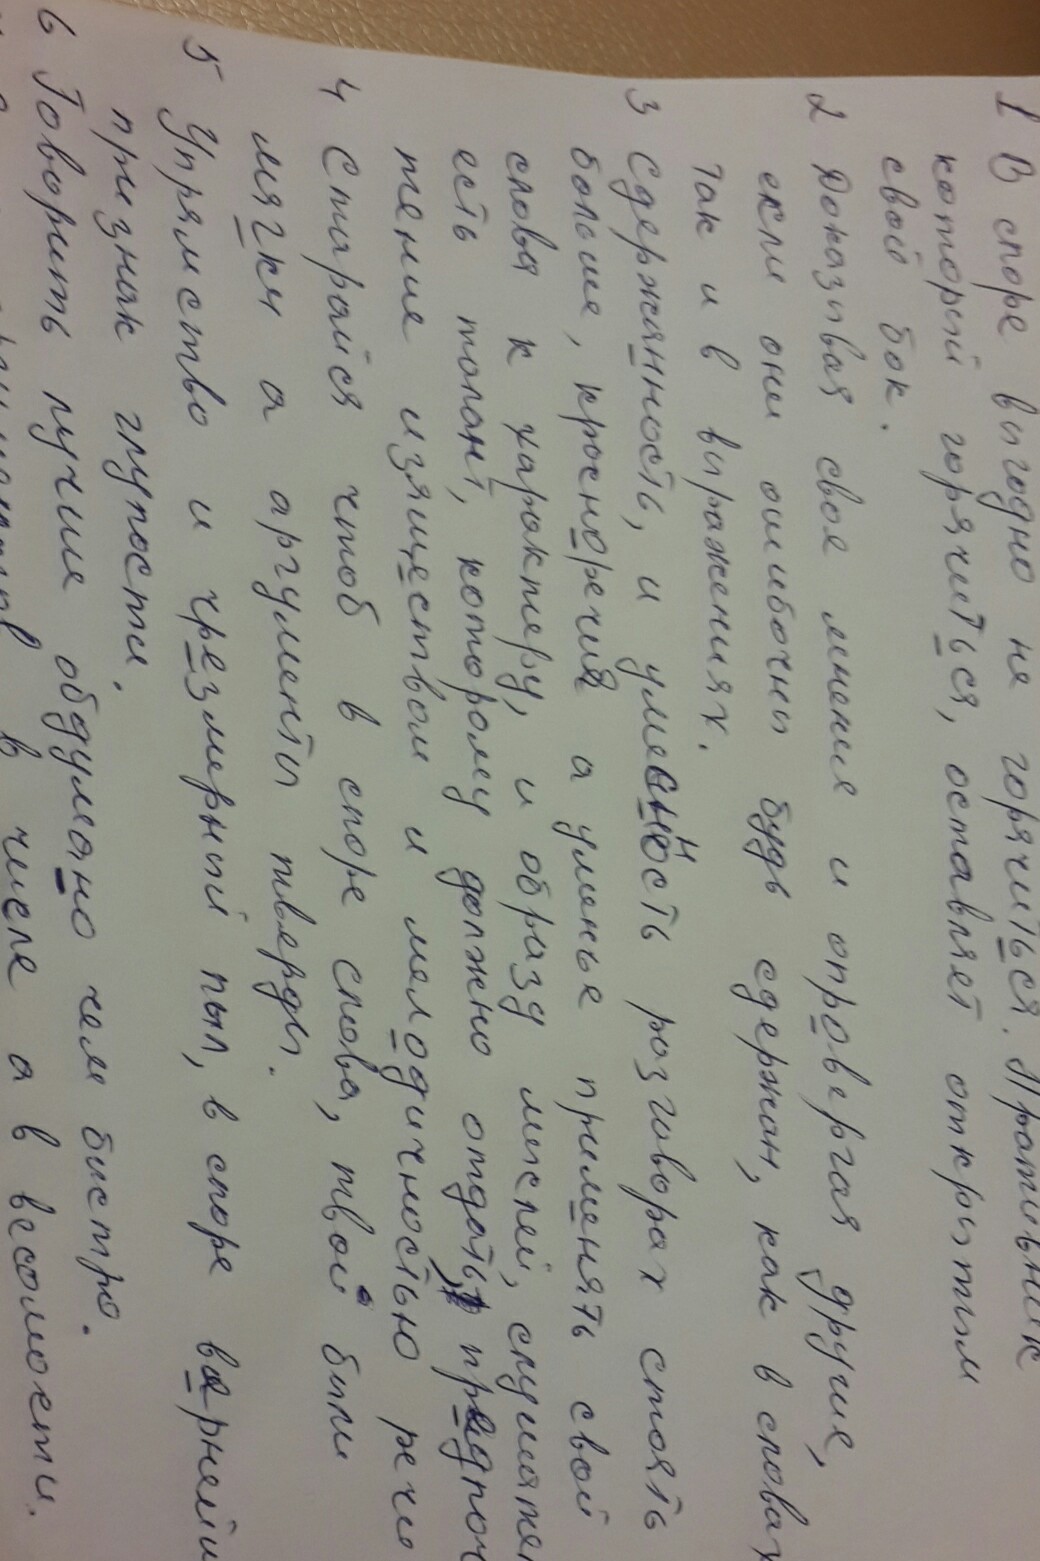 1 В споре выгодно не горячиться. Противник
который горячиться, оставляет открытим
свой бок.
2 Доказивая свое мнение и опровергая другие,
если они ошибочны будь сдержан, как в словах
так и в виражениях.
3 Сдержанность, и уместность разговорах стоять
больше, красноречия а уменье применять свой
слова к характеру, и образу мыслей,
есть талант, которому должно отдать,
тение изяществом и мелодичностью речи
4 Старайся чтоб в споре слова, твои били
мягки а аргументы тверды.
5 Упрямство и чрезмерный пыл, в споре
признак глупости.
6 Говорить лучше обдумано чем быстро.
в числе а в весомости.